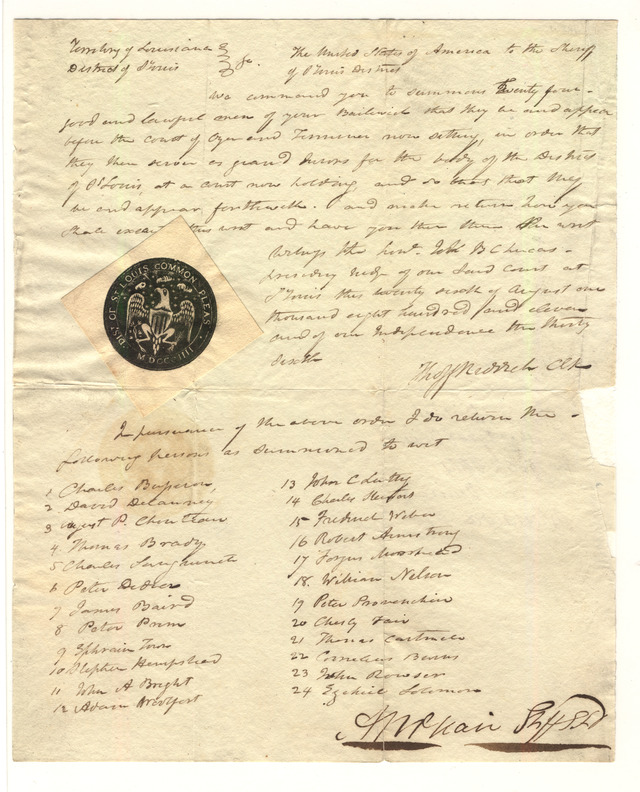 Territory of Louisiana
District of St Louis
} Sc.
The United States of America to the Sheriff
of St Louis District
We command you to summons Twenty four
good and lawful men of your Bailiwick that they be and appear
before the court of Oyer and Terminer now setting, in order that
they then serve as grand Jurors for the body of the District
of St Louis, at a court now holding and so that that they
be and appear forthwith. and make return how you
shall execute this writ and have you then there the writ
Witness the honl. John B C Lucas
presiding Judge of our said Court at
St Louis this twenty sixth of August one
thousand eight hundred and eleven
and of our Independence the thirty
sixth
Tho F Riddick Clk
DIST. OF ST. LOUIS COMMON PLEAS
MDCCCIIII
In pursuance of the above order I do return the
following persons as summoned to wit
1 Charles Busseron
2 David Delauney
3 August P. Chouteau
4 Thomas Brady
5 Charles Sanguinett
6 Peter Didier
7 James Baird
8 Peter Primm
9 Ephraim Town
10 Stephen Hempstead
11 John A Bright
12 Adam
13 John C Lutty
14 Charles
15 Fredrick Weber
16 Robert Armstrong
17 Fergus Moorhead
18. William Nelson
19 Peter Provenchier
20 Charly Fair
21 Thomas
22 Cornelius Burns
23 John Rowser
24 Ezekiel Solomon